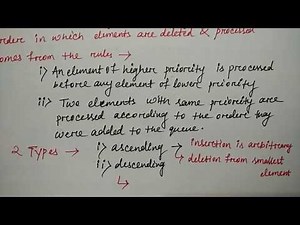 ordere in which elements are deleted & processed
comes from the rules →
i) An element of higher priority is processed
before any element of lower priority
ii) Two elements with same priority are
processed according to the ordere they
were added to the queue.
2 Types → i) ascending → insertion is arbitrary
ii) descending → deletion from smallest
element
↳